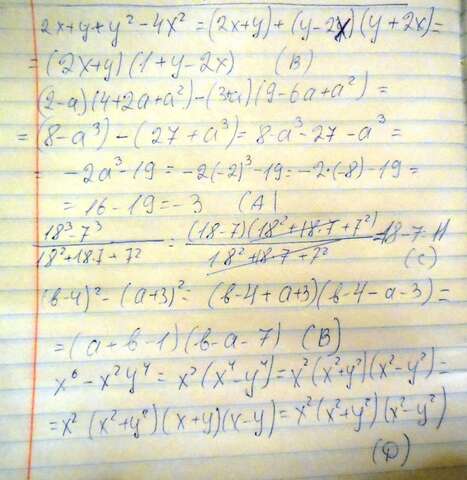 2x+y+y²-4x²=(2x+y)+(y-2x)(y+2x)=
=(2x+y)(1+y-2x) (B)
(2-a)(4+2a+a²)-(3+a)(9-6a+a²)=
=(8-a³)-(27+a³)=8-a³-27-a³=
= -2a³-19=-2(-2)³-19=-2·(-8)-19=
=16-19=-3 (A)
18³-7³/18²+18·7+7² = (18-7)(18²+18·7+7²)/18²+18·7+7² =18-7=11
(C)
(b-4)²-(a+3)²=(b-4+a+3)(b-4-a-3)=
=(a+b-1)(b-a-7) (B)
x⁶-x²y⁴=x²(x⁴-y⁴)=x²(x²+y²)(x²-y²)=
=x²(x²+y²)(x+y)(x-y)=x²(x²+y²)(x²-y²)
(D)